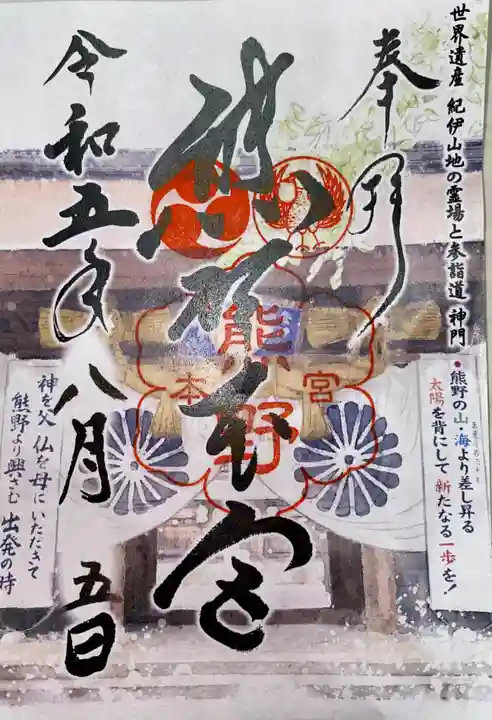 世界遺産 紀伊山地の霊場と参詣道 神門
熊野の山・海より差し昇る
太陽を背にして新たなる一歩を!
奉拝
熊野本宮
熊野
本宮
令和五年八月五日
神を父 仏を母にいただきて
熊野より興さむ 出発の時